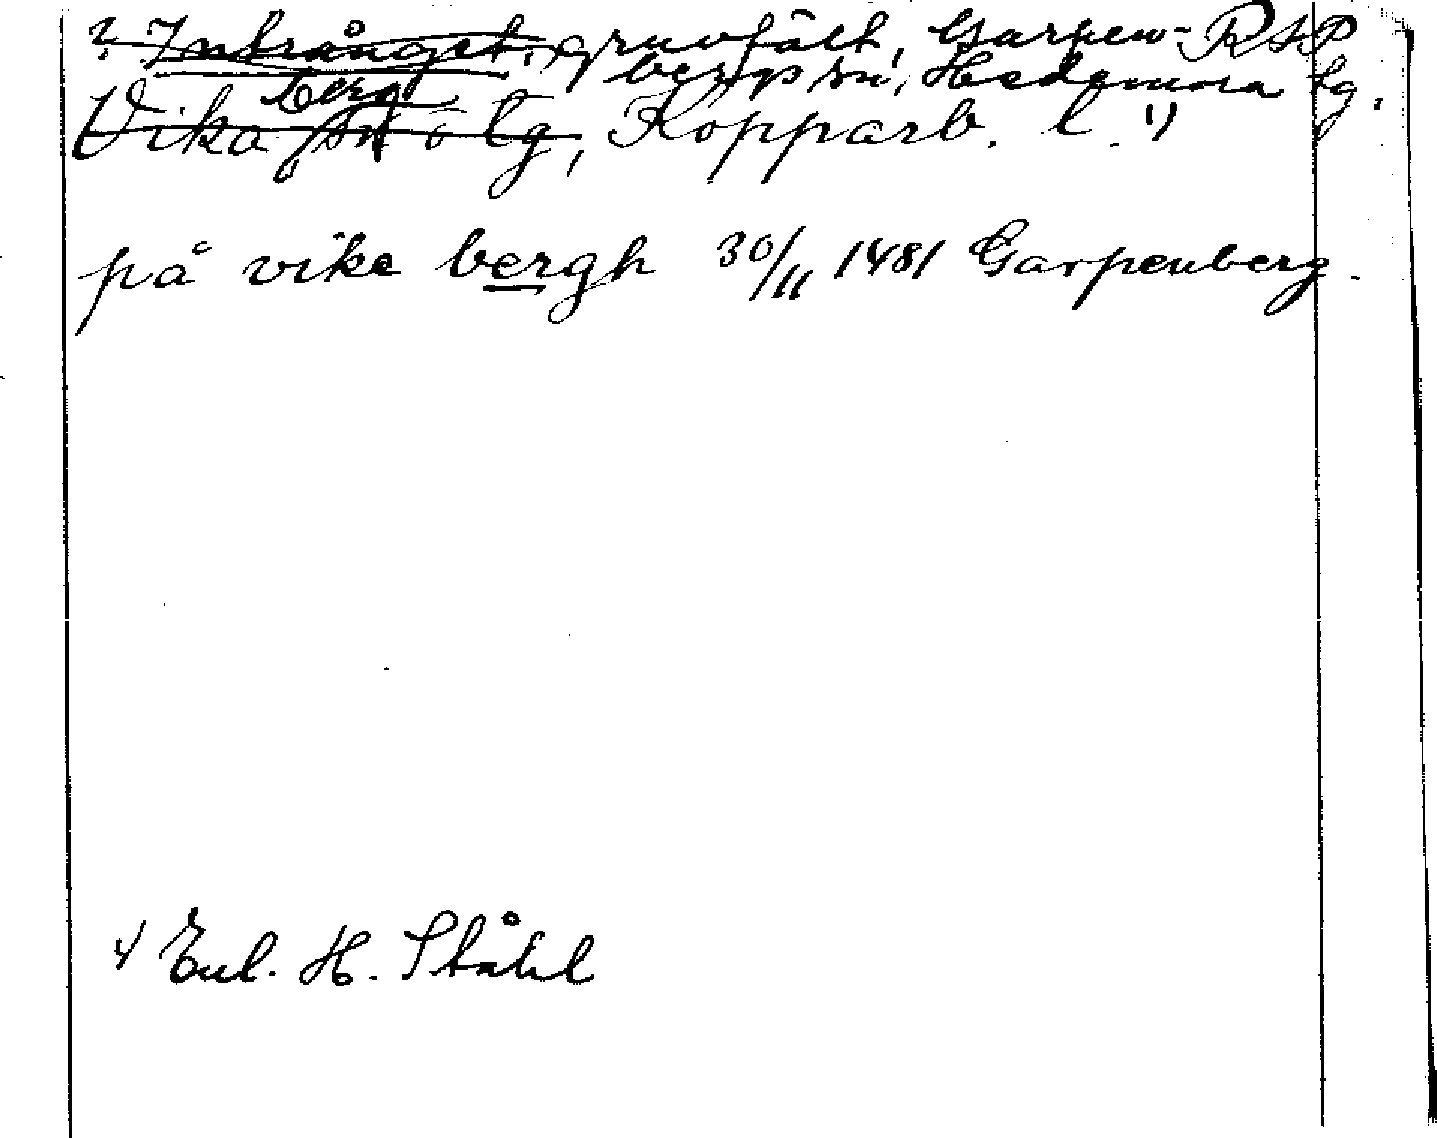 ? Indränget, gruvfält, Garpen- RAP
bergs sn, Hedemora tg.
berg
Vika sn o tg, Kopparb. l. 1)
på vike bergh 30/11 1481 Garpenberg.
1) Enl. H. Ståhl